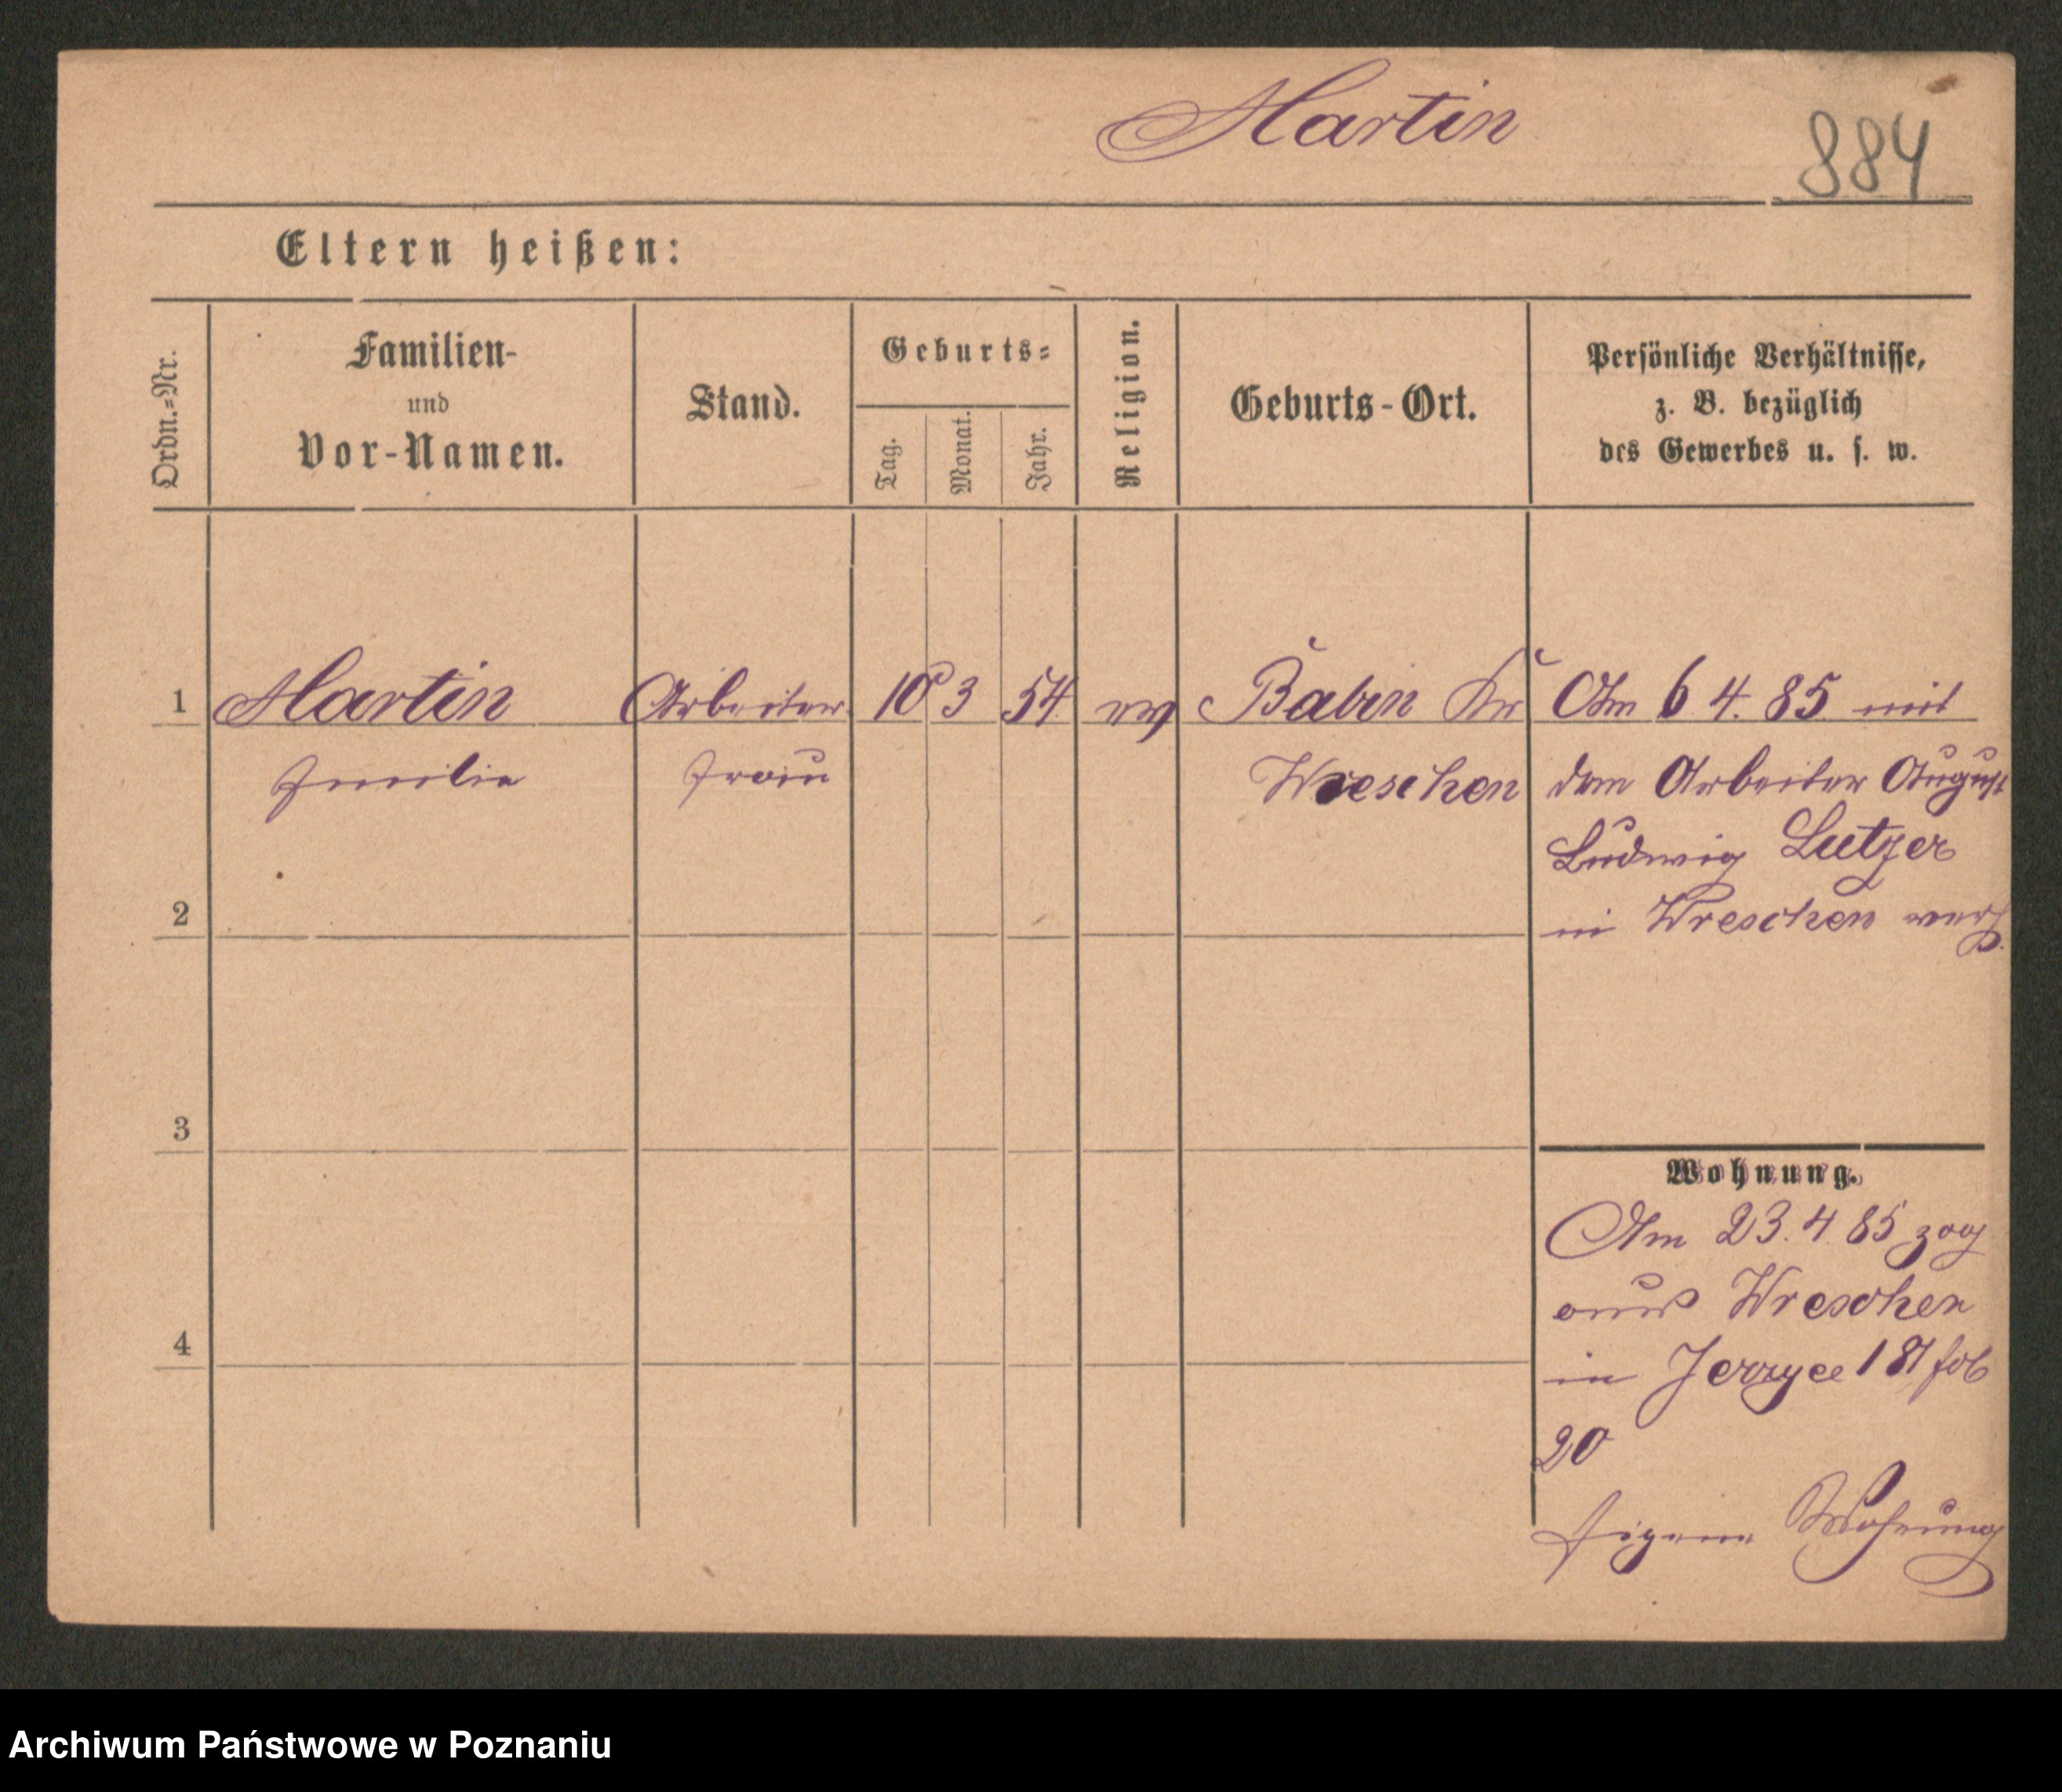 Martin
884
Eltern heißen:
Ordn.=Nr.
Familien-
und
Vor-Namen.
Stand.
Geburts=
Tag.
Monat.
Jahr.
Religion.
Geburts-Ort.
Persönliche Verhältnisse,
z. B. bezüglich
des Gewerbes u. s. w.
1 Martin Arbeiter 10 3 54 ev Babin Kr Am 6 4. 85 mit
Emilie Frau Wreschen dem Arbeiter August
Ludwig Lutzer
2 in Wreschen verh.
3
Wohnung.
Am 23. 4 85 zog
aus Wreschen
4 in Jerzyce 181 fol
20
Eigene Wohnung
Archiwum Państwowe w Poznaniu